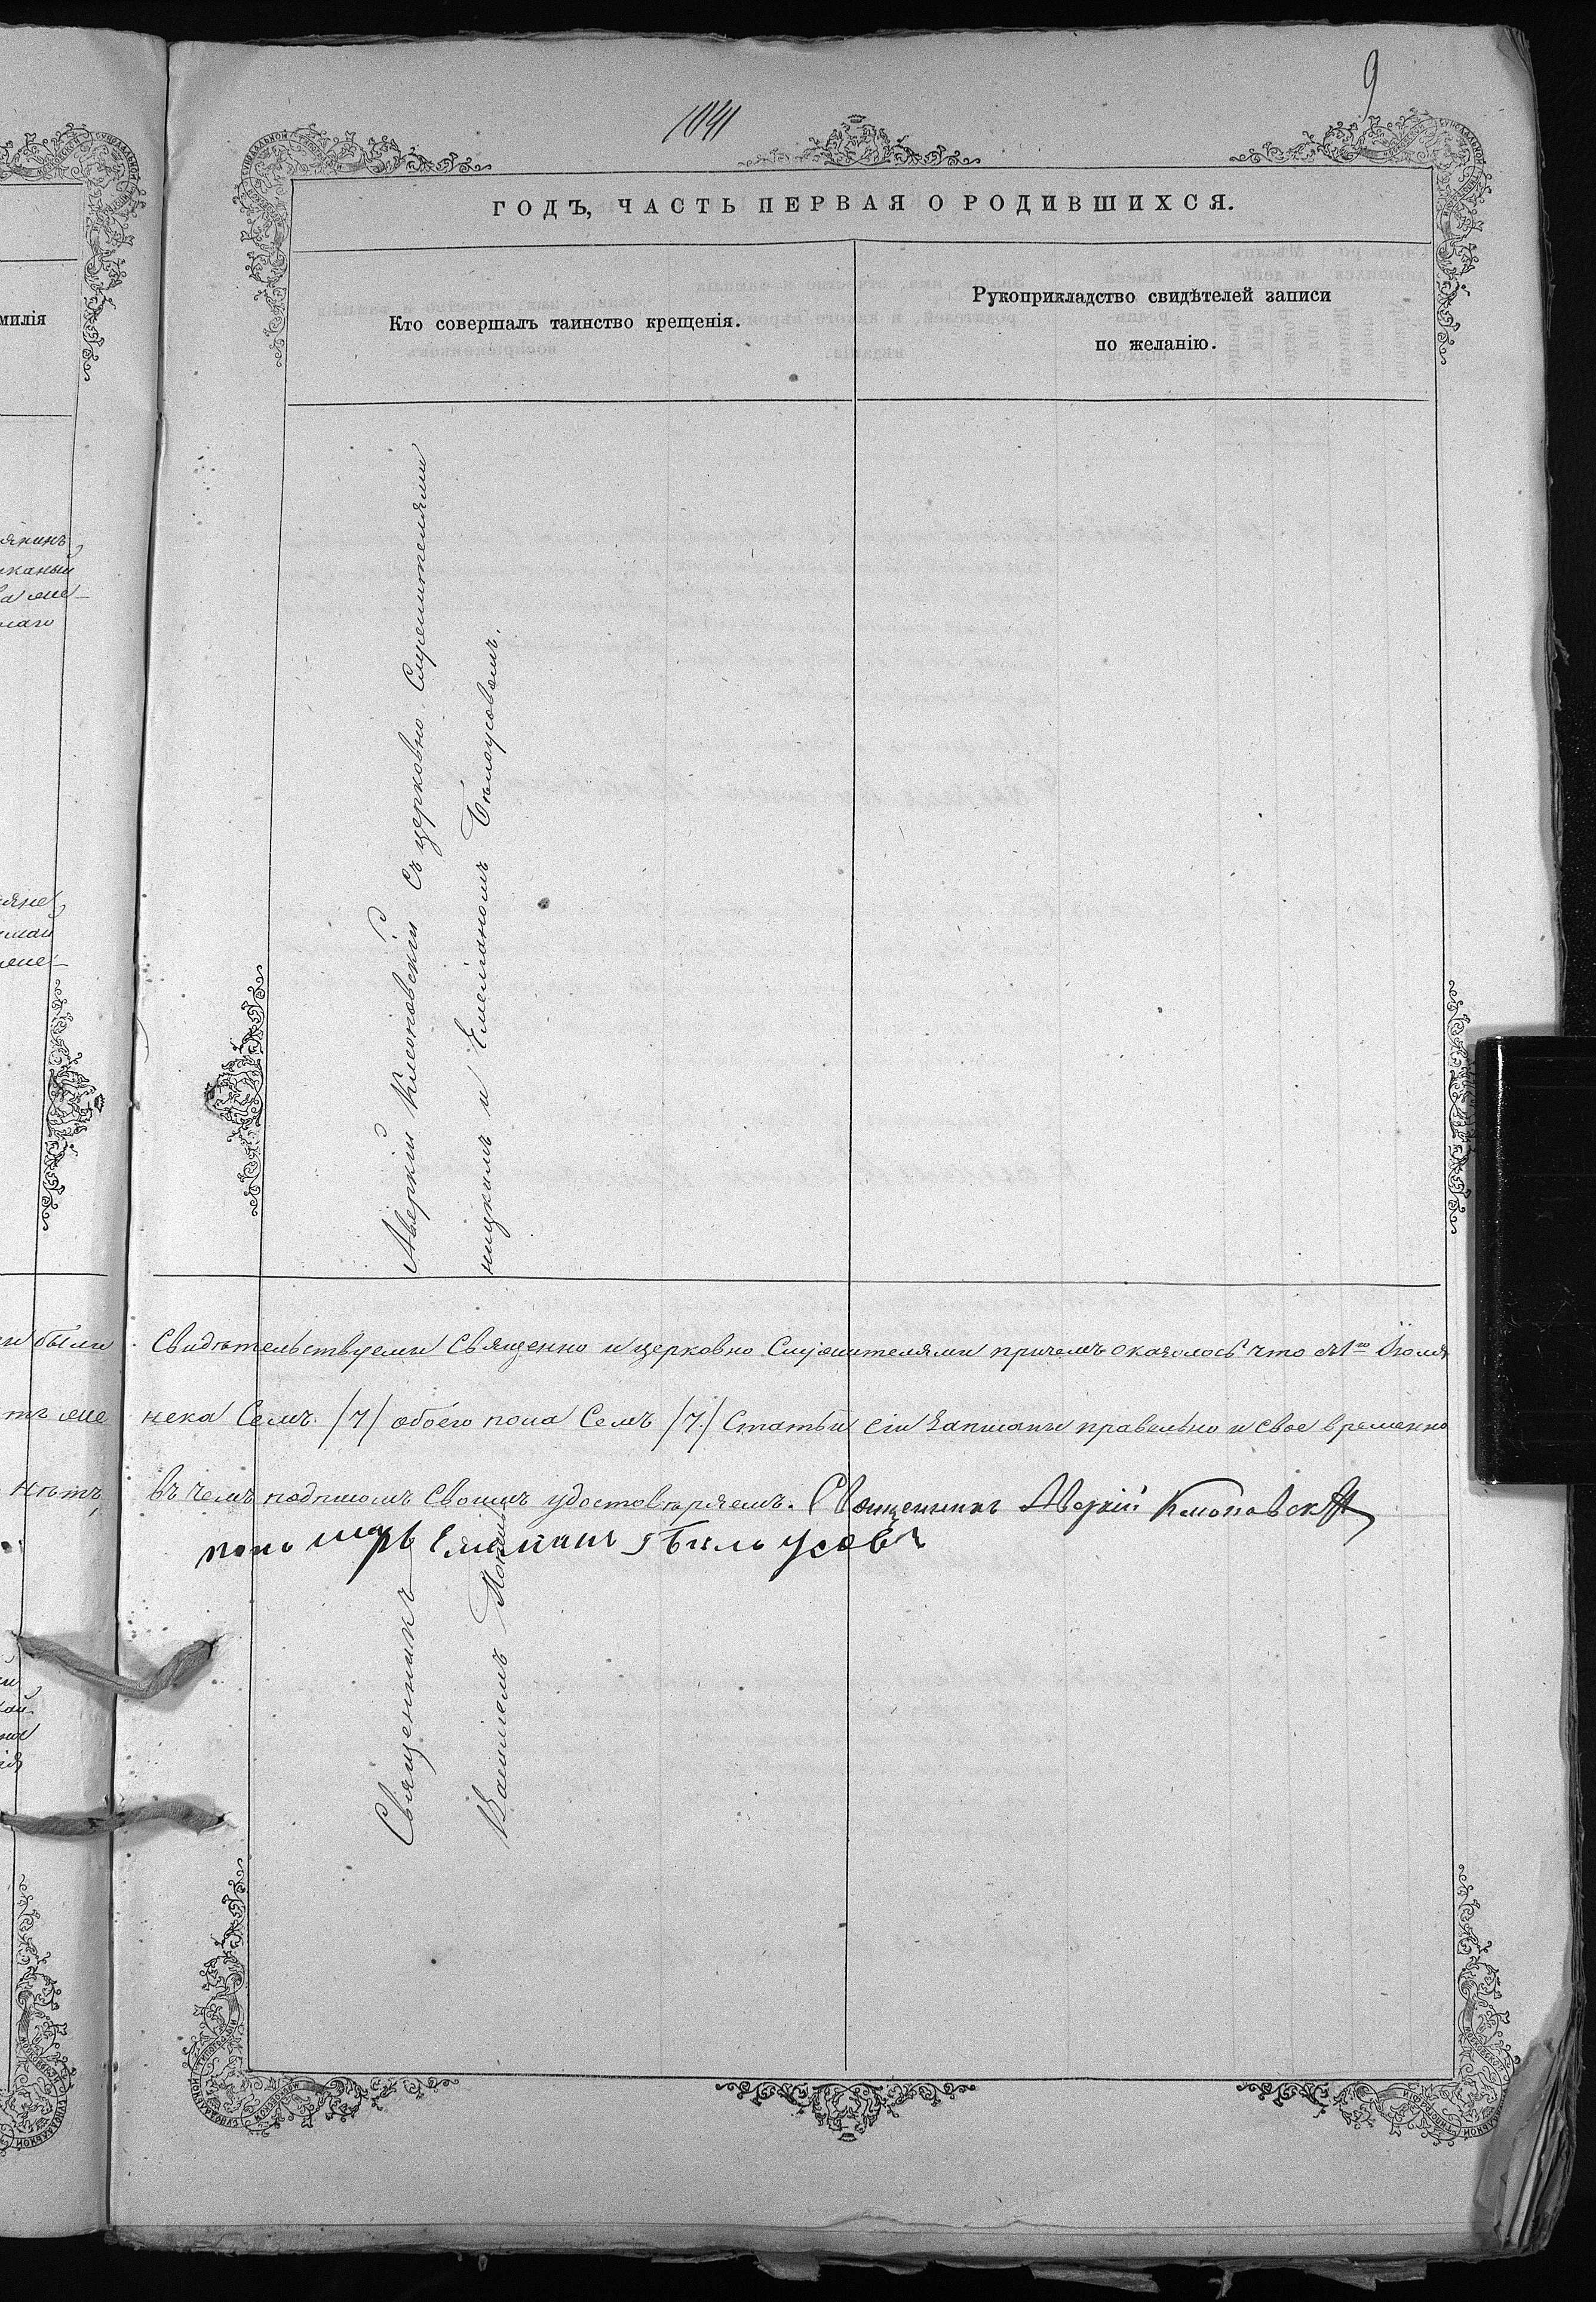 9
1041
ГОДЪ, ЧАСТЬ ПЕРВАЯ О РОДИВШИХСЯ.
милія
Кто совершалъ таинство крещенія.
Рукоприкладство свидѣтелей записи
по желанію.
Священникъ Аверкій Клоповскій съ церковно Служителями
Василемъ и Емеліаномъ Бѣлоусовымъ.
и были
Свидѣтельствуемы Священно и церковно Служителями причемъ оказолось что съ 1го Іюля
нска Семъ /7/ обоего пола Семъ /7/ Статьи сіи Записаны правельно и свое временно
нѣтъ,
въ чемъ подписомъ своимъ удостовѣряемъ. Священникъ Аверкій Клоповскій
поно марь Емелианъ Бѣло усовъ